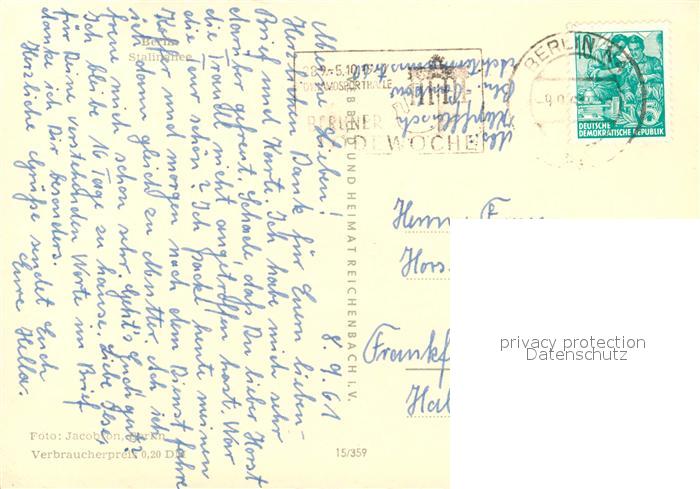 Berlin
Stalinallee
8.9.61
Meine Lieben!
Herzlichen Dank für Euern lieben
Brief und Karte. Ich habe mich sehr
darüber gefreut. Schade, daß Du lieber Horst
die Traudl nicht angetroffen hast. War
die Kur schön? Ich packe heute meinen
Koffer und morgen nach dem Dienst fahre
ich dann gleich zu Mutter. Ach ich
freue mich schon sehr. Geht's Euch gut?
Ich bleibe 16 Tage zu hause. Liebe Ilse,
für Deine vorstehenden Worte im Brief
danke ich Dir besonders.
Herzliche Grüße sendet Euch
Eure Hella.
Foto: Jacobson, Berlin
Verbraucherpreis 0,20 DM
15/359
BILD UND HEIMAT REICHENBACH I. V.
28.9.-5.10.
DYNAMOSPORTHALLE
BERLINER
MODEWOCHE
BERLIN
DEUTSCHE
DEMOKRATISCHE REPUBLIK
5
Herrn
Hors
Frankf
Hal
privacy protection
Datenschutz